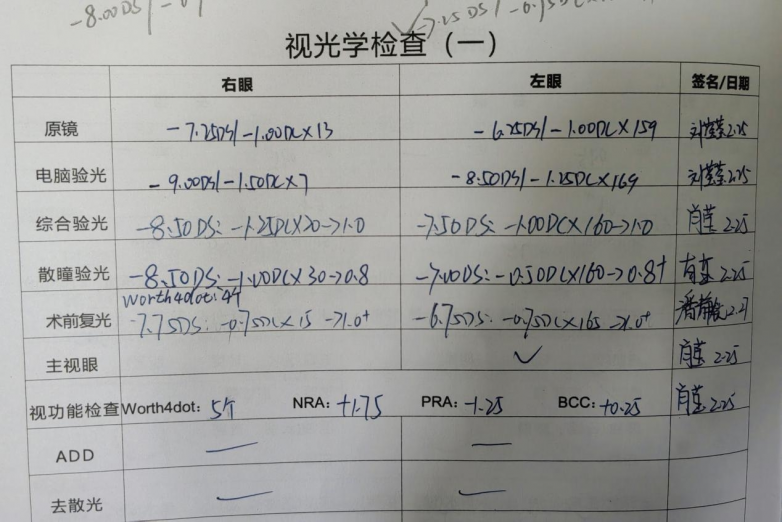 -8.00DS/
-7.25DS/ -0.75DC
视光学检查（一）
右眼 左眼 签名/日期
原镜 -7.25DS/-1.00DC×13 -6.25DS/-1.00DC×159 2.25
电脑验光 -9.00DS/-1.50DC×7 -8.50DS/-1.25DC×169 2.25
综合验光 -8.50DS: -1.25DC×20->1.0 -7.50DS: -1.00DC×160->1.0 2.25
散瞳验光 -8.50DS: -1.00DC×30->0.8 -7.00DS: -0.50DC×160->0.8+ 2.25
worth4dot: 4个
术前复光 -7.75DS: -0.75DC×15->1.0+ -6.75DS: -0.75DC×165->1.0+ 2.27
主视眼 ✓ 2.25
视功能检查 Worth4dot: 5个 NRA: +1.75 PRA: -1.25 BCC: +0.25 2.25
ADD — —
去散光 — —